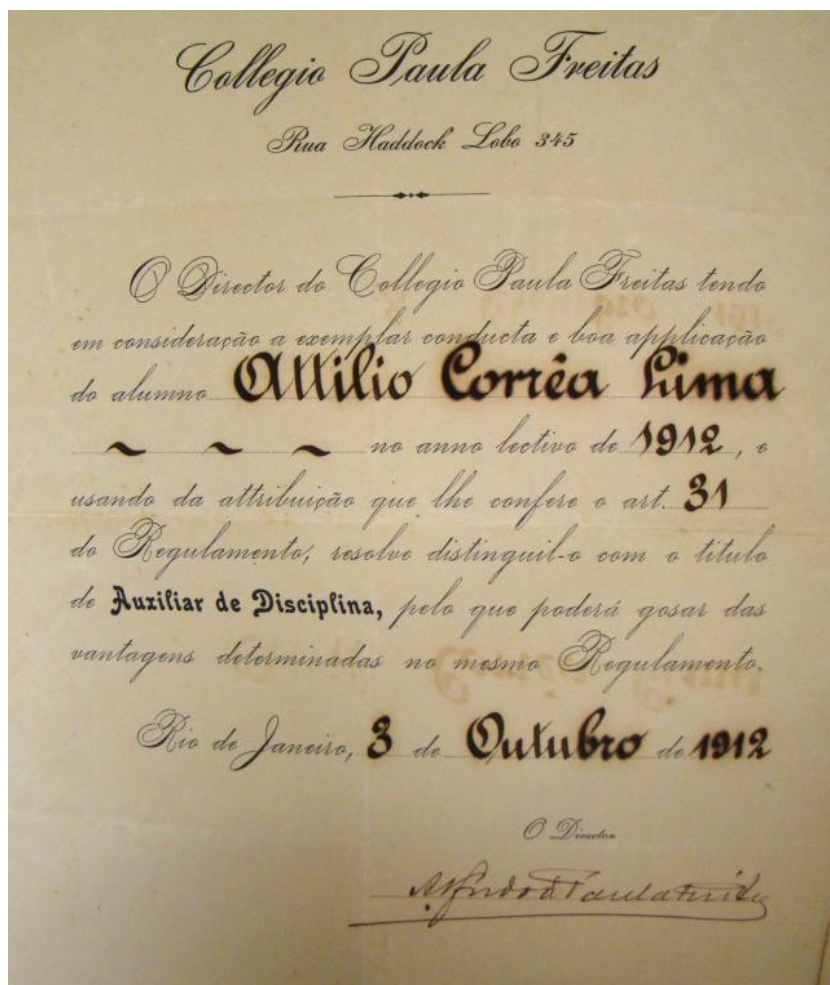 Collegio Paula Freitas
Rua Haddock Lobo 345
O Director do Collegio Paula Freitas tendo
em consideração a exemplar conducta e boa applicação
do alumno Attilio Corrêa Lima
~ ~ ~ no anno lectivo de 1912, e
usando da attribuição que lhe confere o art. 31
do Regulamento, resolve distinguil-o com o titulo
de Auxiliar de Disciplina, pelo que poderá gosar das
vantagens determinadas no mesmo Regulamento.
Rio de Janeiro, 3 de Outubro de 1912
O Director
Alfredo de Paula Freitas